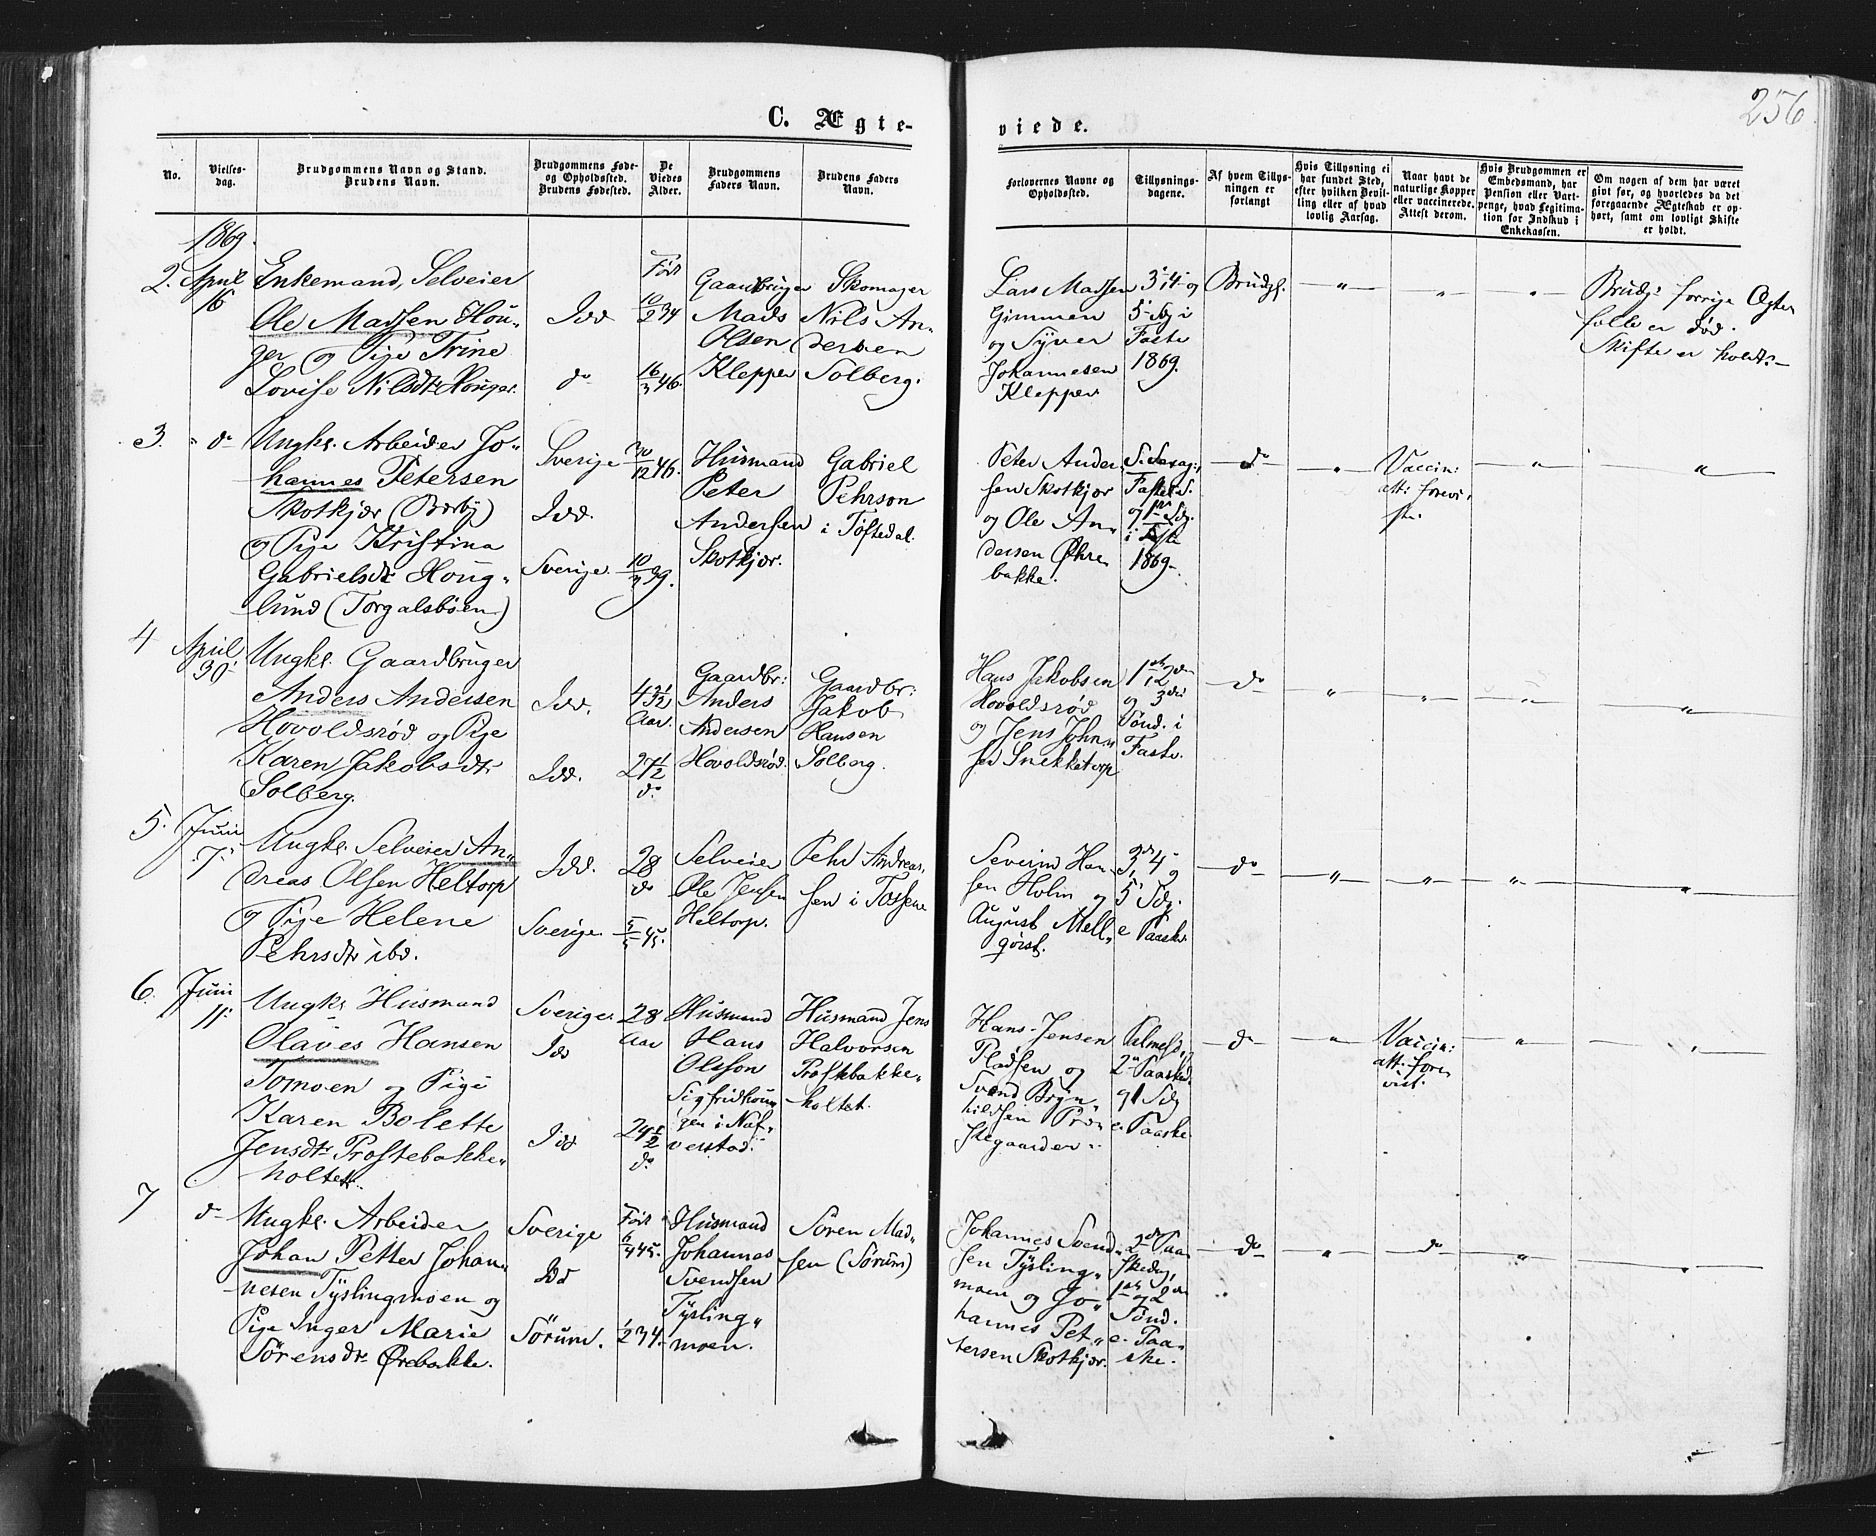 256
C. Ægte-
viede.
No.
Vielses-
dag.
Brudgommens Navn og Stand.
Brudens Navn.
Brudgommens Føde-
og Opholdssted.
Brudens Fødested.
De
Viedes
Alder.
Brudgommens
Faders Navn.
Brudens Faders
Navn.
Forlovernes Navne og
Opholdssted.
Tillysnings-
dagene.
Af hvem Tillys-
ningen er
forlangt
Hvis Tillysning ei
har fundet Sted,
efter hvilken Bevil-
ling eller af hvad
lovlig Aarsag.
Naar havt de
naturlige Kopper
eller vaccinerede.
Attest derom.
Hvis Brudgommen er
Embedsmand, har
Pension eller Vart-
penge, hvad Legitima-
tion for Indskud i
Enkekassen.
Om nogen af dem har været
gift før, og hvorledes da det
foregaaende Ægteskab er op-
hørt, samt om lovligt Skifte
er holdt.
1869.
2.
April
16
Enkemand, Selveier
Ole Madsen Hou-
ger og Pige Trine
Lovise Nilsdtr Houger.
Idd
do
Født
10/2 34
16/3 46.
Gaardbruger
Mads
Olsen
Klepper
Skomager
Nils An-
dersen
Solberg.
Lars Madsen
Gimmen
og Syver
Johannesen
Klepper
3, 4 og
5 Sdg i
Faste
1869.
Brudg.
"
"
"
Brudg: forrige Ægte
fælle er død.
Skifte er holdt.
3.
" do
Ungk. Arbeider Jo-
hannes Petersen
Skotkjær (Berby)
og Pige Kristina
Gabrielsdtr Houg-
lund (Torgalsbøen)
Sverige
Idd.
Sverige.
30/12 46.
10/3 39.
Husmand
Peter
Andersen
Skotkjær.
Gabriel
Pehrson
i Töftedal.
Peter Ander
sen Skotkjær
og Ole An-
dersen Øhre
bakke.
S. Sexag.,
Fastel. S.
og 1ste Sdg.
i Faste
1869.
do
"
Vaccin:
att: forevi-
ste.
"
"
4
April
30
Ungk. Gaardbruger
Anders Andersen
Hovoldsrød og Pige
Karen Jakobsdtr
Solberg.
Idd.
Idd.
43 1/2
Aar.
27 1/2
do
Gaardbr:
Anders
Andersen
Hovoldsrød.
Gaardbr:
Jakob
Hansen
Solberg.
Hans Jakobsen
Hovoldsrød
og Jens John-
sen Snekketorp
1ste 2den
og 3die
Sønd. i
Faste.
do
"
"
"
"
5.
Juni
7.
Ungk. Selveier An-
dreas Olsen Heltorp
og Pige Helene
Pehrsdtr ibd.
Idd.
Sverige.
28
do
5/5 45.
Selveier
Ole Jensen
Heltorp.
Pehr Andreas.
sen i Tossene
Severin Han
sen Holm og
August Mell-
qvist.
3die, 4 og
5 Sdg.
e. Paaske.
do
"
"
"
"
6.
Juni
11.
Ungk. Husmand
Olaves Hansen
Tomoen og Pige
Karen Bolette
Jensdtr Prestebakke-
holtet.
Sverige
Idd
Idd
28
Aar
24 1/2
do
Husmand
Hans
Olsson
Sigfridhoun
gen i Naf-
verstad.
Husmand Jens
Halvorsen
Prestebakke-
holtet.
Hans Jensen
Pladsen og
Svend Bryn-
hildsen Præ-
stegaarden.
Palmesd.,
2 Paasked.
og 1 Sdg
e. Paaske
do
"
Vaccin:
att: fore
vist.
"
"
7
do
Ungk. Arbeider
Johan Petter Johan-
nesen Tyslingmoen og
Pige Inger Marie
Sörensdtr Ørebakke.
Sverige
Idd
Sörum.
Født
6/4 45.
1/2 34.
Husmand
Johannes
Svendsen
Tysling-
moen.
Soren Mad-
sen (Sörum)
Johannes Svend-
sen Tysling-
moen og Jo-
hannes Pet-
tersen Skotkjær.
2den Paa
skedag,
1ste og 2den
Sønd.
e. Paa-
ske.
do
"
do
"
"